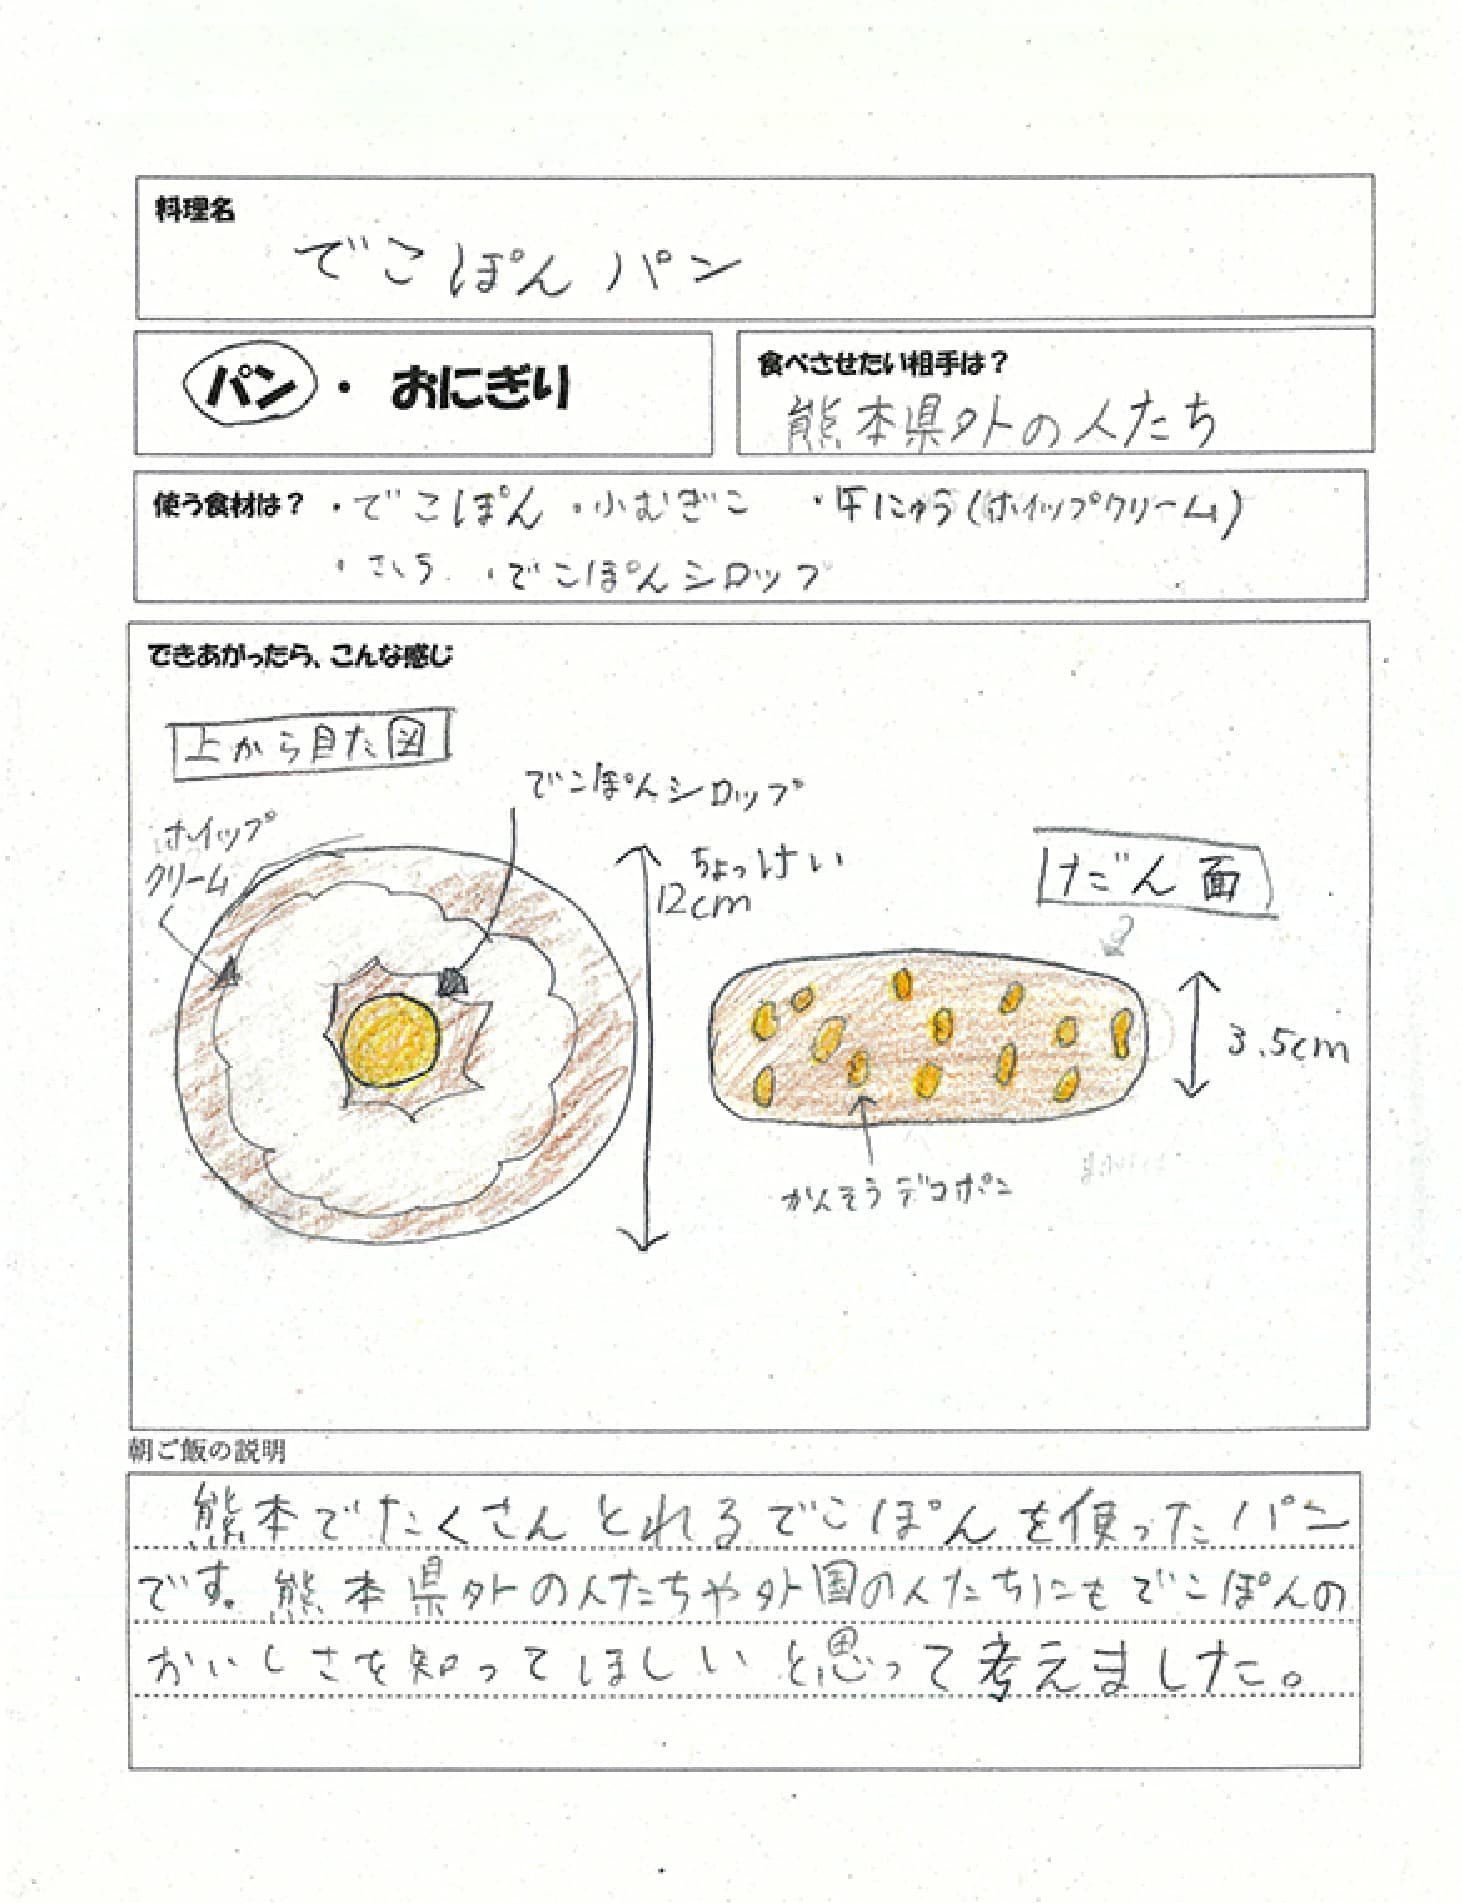 料理名
でこぽんパン
パン・おにぎり
食べさせたい相手は？
熊本県外の人たち
使う食材は？ ・でこぽん ・小むぎこ ・牛にゅう(ホイップクリーム)
・さとう ・でこぽんシロップ
できあがったら、こんな感じ
上から見た図
でこぽんシロップ
ホイップ
クリーム
ちょっけい
12cm
だん面
3.5cm
かんそうデコポン
朝ご飯の説明
熊本でたくさんとれるでこぽんを使ったパン
です。熊本県外の人たちや外国の人たちにもでこぽんの
おいしさを知ってほしいと思って考えました。